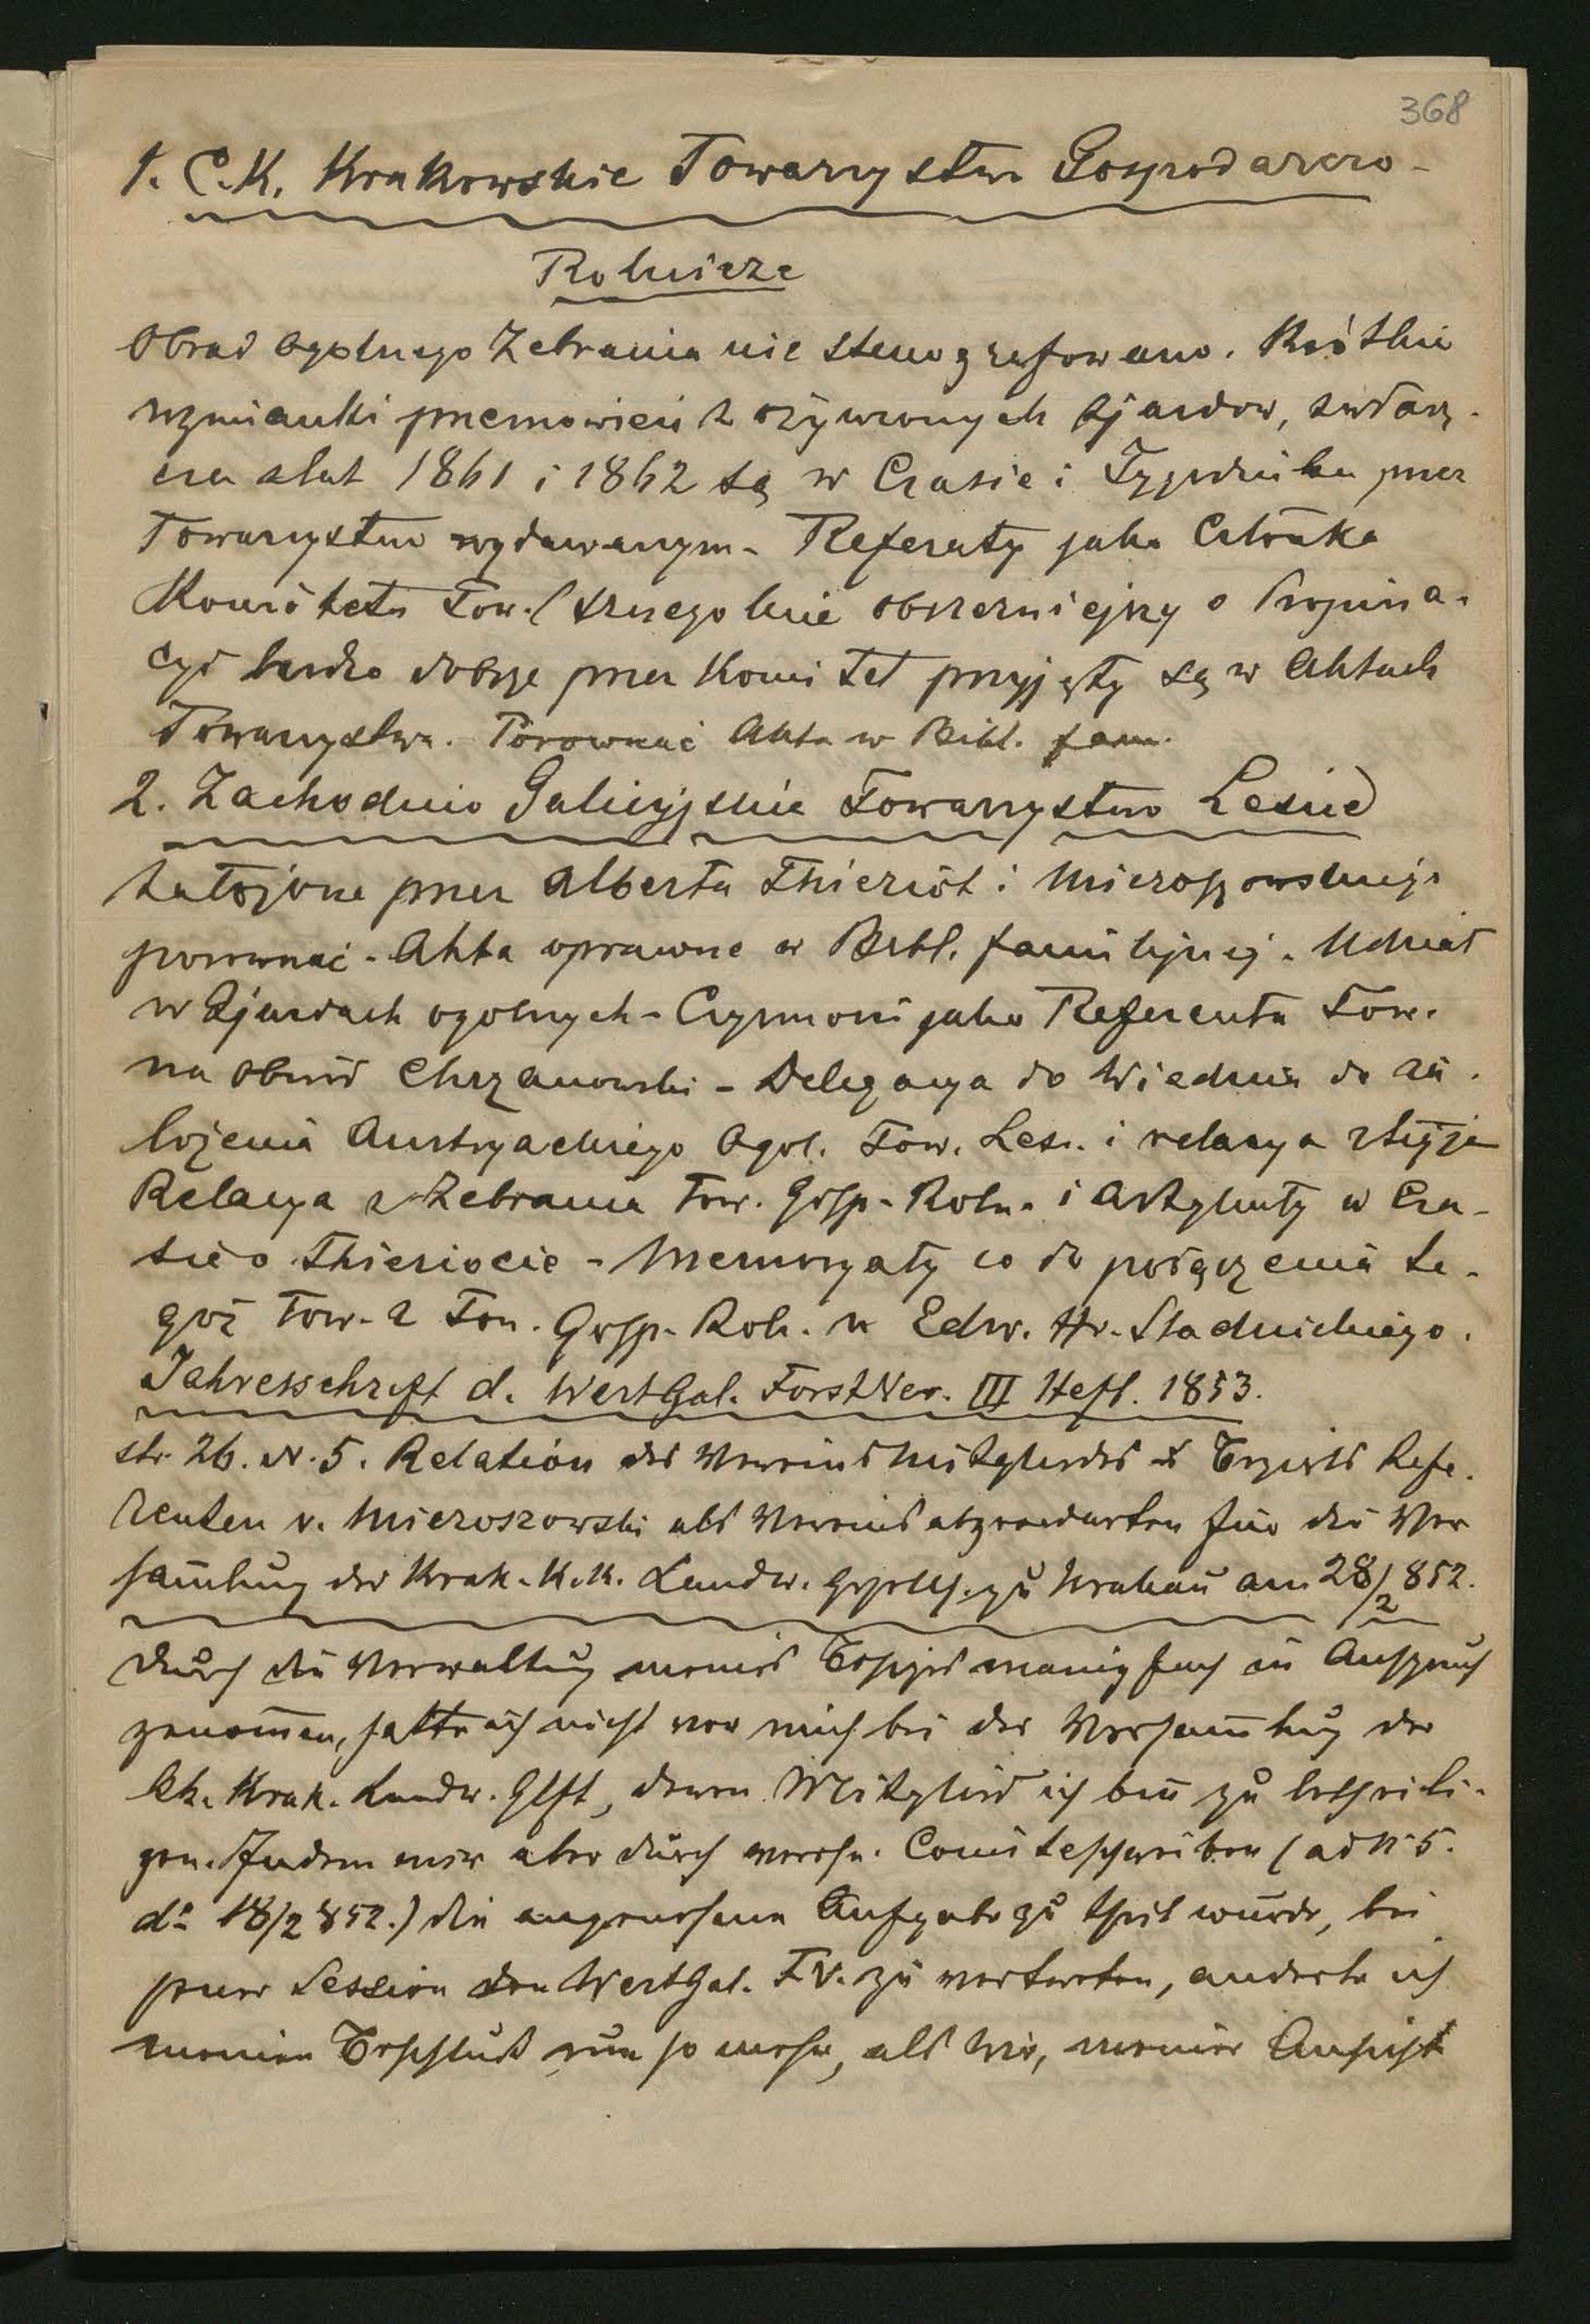 368
1. C.K. Krakowskie Towarzystwo Gospodarczo-
Rolnicze
Obrad ogolnego Zebrania nie stenografowano. Krótkie
wzmianki przemowień z ożywionych Zjazdow, zwłasz-
cza z lat 1861 i 1862 są w Czasie i Tygodniku przez
Towarzystwo wydawanym. Referaty jako Członka
Komitetu Tow. (szczegolnie obszerniejszy o Propina-
cyi bardzo dobrze przez Komitet przyjęty są w Aktach
Towarzystwa. Porownać Akta w Bibl. fam.
2. Zachodnio Galicyjskie Towarzystwo Leśne
założone przez Alberta Thieriot i Mieroszowskiego
porownać Akta oprawne w Bibl. familijnej. Udział
w Zjazdach ogolnych - Czynności jako Referenta Tow.
na obwód Chrzanowski - Delegacya do Wiednia do za-
łożenia Austryackiego Ogol. Tow. Leś. i relacya z tejże
Relacya z Zebrania Tow. Gosp. Roln. i Artykuły w Cza-
sie o Thieriocie - Memoryały co do połączenia te-
goż Tow. z Tow. Gosp. Rol. u Edw. Hr. Stadnickiego.
Jahresschrift d. WestGal. ForstVer. III Heft. 1853.
str. 26. N. 5. Relation des Vereins Mitgliedes & Bezirks Refe-
renten v. Mieroszowski als Vereinsabgeordneten für die Ver
sam̄lung der Krak. K.K. Landw. Gesellsch. zu Krakau am 28/2 852.
Durch die Verwaltung meines Besitzes manigfach in Anspruch
genom̄en, hatte ich nicht vor mich bei der Versam̄lung der
kk. Krak. Landw. Glft, deren Mitglied ich bin zu betheili-
gen. Indem mir aber durch verehr. Comiteschreiben (ad N. 5.
do 18/2 852.) die angenehme Aufgabe zu theil wurde, bei
jener Session den WestGal. FV. zu vertreten, änderte ich
meinen Beschluß um so mehr, als wir, meiner Ansicht